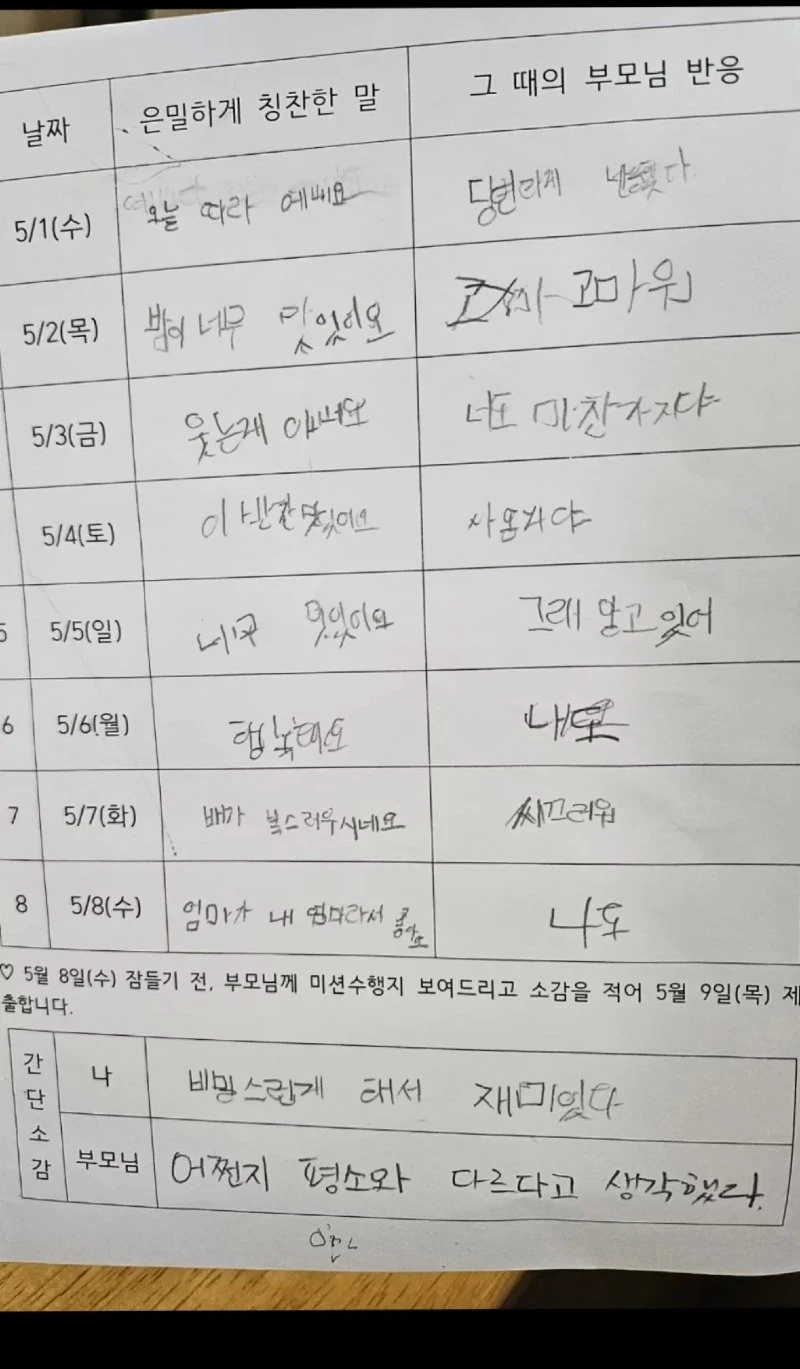 날짜 은밀하게 칭찬한 말 그 때의 부모님 반응
5/1(수) 오늘 따라 예뻐요
5/2(목) 밥이 너무 맛있어요 고마워
5/3(금) 웃는게 너도 마찬가지야
5/4(토) 이 반찬 맛있어요
5/5(일) 맛있어요 그래 알고 있어
6 5/6(월) 내도
7 5/7(화) 배가 복스러우시네요 씨끄러워
8 5/8(수) 엄마가 내 엄마라서 나도
♡ 5월 8일(수) 잠들기 전, 부모님께 미션수행지 보여드리고 소감을 적어 5월 9일(목) 제
출합니다.
간단소감
나 비밍스럽게 해서 재미있다
부모님 어쩐지 평소와 다르다고 생각했다.